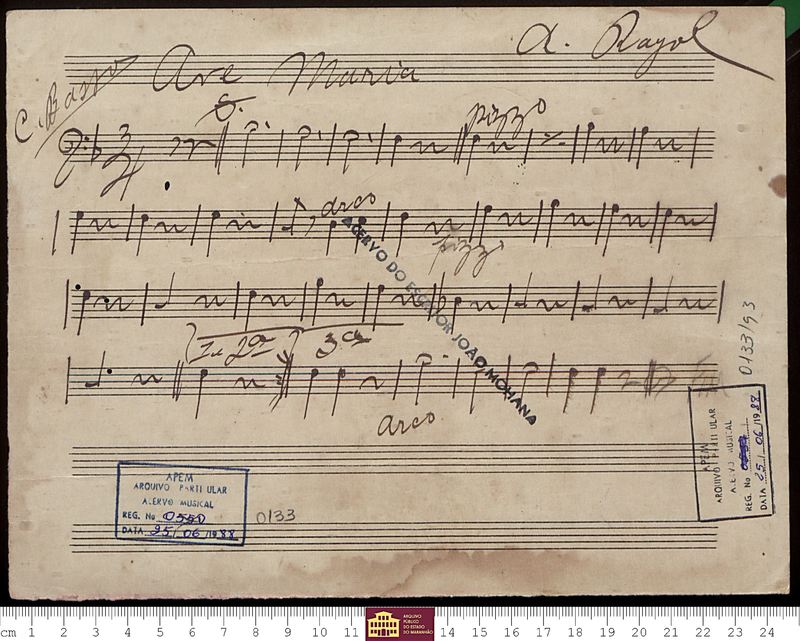 A. Rayol
Ave Maria
C. Basso
S.
pizz
3
4
arco
pizz
ACERVO DO ESCRITOR JOÃO MOHANA
1ª 2ª
3ª
arco
0133/93
APEM
ARQUIVO PARTI ULAR
ACERVO MUSICAL
REG. No
DATA 25/06/1988
APEM
ARQUIVO PARTI ULAR
ACERVO MUSICAL
REG. No 0550
DATA 25/06/1988
0133
cm 1 2 3 4 5 6 7 8 9 10 11 14 15 16 17 18 19 20 21 22 23 24
ARQUIVO
PÚBLICO
DO ESTADO
DO MARANHÃO